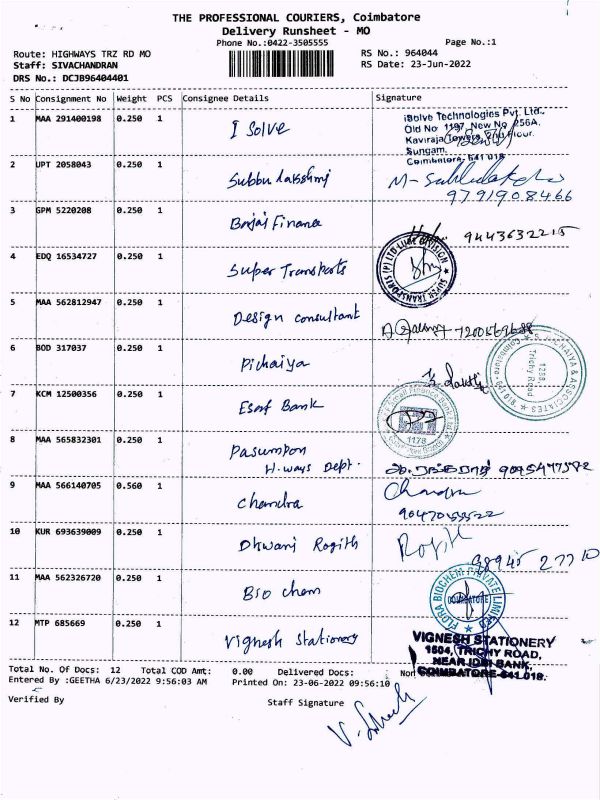 THE PROFESSIONAL COURIERS, Coimbatore
Delivery Runsheet - MO
Phone No.:0422-3505555
Page No.:1
Route: HIGHWAYS TRZ RD MO
RS No.: 964044
Staff: SIVACHANDRAN
RS Date: 23-Jun-2022
DRS No.: DCJB96404401
S No Consignment No Weight PCS Consignee Details Signature
1 MAA 291400198 0.250 1 I Solve
iSolve Technologies Pvt. Ltd.,
Old No 1197, New No 256A,
Kaviraja Towers, Floor.
Sungam.
Coimbatore- 641 018
2 UPT 2058043 0.250 1 Subbu Lakshmi
9791908466
3 GPM 5220208 0.250 1 Bajaj Finance
9443632215
4 EDQ 16534727 0.250 1 Super Transports
SUPER TRANSPORTS (P) LTD DIVISION
5 MAA 562812947 0.250 1 Design consultant
6 BOD 317037 0.250 1 Pichaiya
& ASSOCIATES
Trichy Road
7 KCM 12500356 0.250 1 Esaf Bank
Small Finance Bank Ltd
1178
8 MAA 565832301 0.250 1 Pasumpon
H.ways Dept.
9 MAA 566140705 0.560 1 Chandra
Chandra
10 KUR 693639009 0.250 1 Dhwani Rogith
Rogith
98945 27710
11 MAA 562326720 0.250 1 Bio chem
FLORA BIOCHEM PRIVATE LIMITED
COIMBATORE
12 MTP 685669 0.250 1 Vignesh Stationery
VIGNESH STATIONERY
1604, TRICHY ROAD,
NEAR IDBI BANK,
COIMBATORE-641 018.
Total No. Of Docs: 12 Total COD Amt: 0.00 Delivered Docs: Non
Entered By :GEETHA 6/23/2022 9:56:03 AM Printed On: 23-06-2022 09:56:10
Verified By
Staff Signature